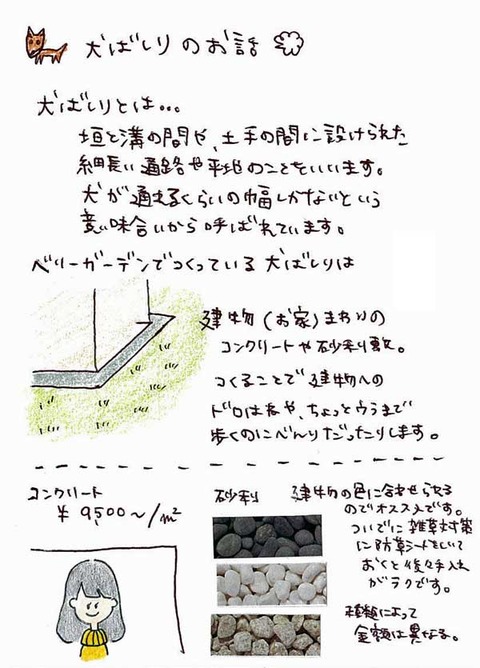 犬ばしりのお話
犬ばしりとは…
垣と溝の間や、土手の間に設けられた
細長い通路や平地のことをいいます。
犬が通えるくらいの幅しかないという
意味合いから呼ばれています。
ベリーガーデンでつくっている犬ばしりは
建物(お家)まわりの
コンクリートや砂利敷。
つくることで建物への
ドロはねや、ちょっとウラまで
歩くのにべんりだったりします。
コンクリート
¥9,500〜/㎡
砂利
建物の色に合わせられる
のでオススメです。
ついでに雑草対策
に防草シートをしいて
おくと後々手入れ
がラクです。
種類によって
金額は異なる。